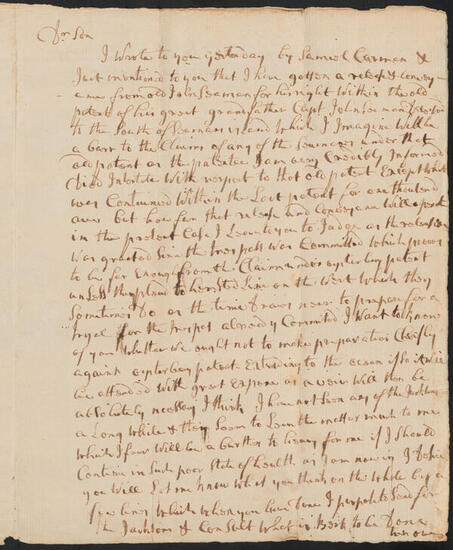 Dr Son
I Wrote to you yesterday by Samuel Carman &
Just mentioned to you that I have gotten a release & convey=
ance from old John Seaman for his right Within the old
patent of his great grandfather Capt John Seaman
to the South of Seamans Island which I Imagine Will be
a barr to the Claims of any of the Seamans under that
old patent as the patentee I am very Credibly Informed
Died Intestate With respect to that old patent Except What
was Contained Within the Last patent for one thousand
acres but how far that release and conveyance will operate
in the present Case I Leave to you to Judge as the release
Was granted Since the trespass was Committed which proves
to be far Enough from the Claim under oysterbay patent
unless they plead to hersted Line on the West Which they
Sometimes Do as the time Draws near to prepare for a
Tryal for the trespas already Commited I Want to know
of you Whether We ought not to make preparation Cheefly
against oysterbay patent Extending to the ocean if so it will
be attended With great Expence as a view Will then be
absolutely necessary I think I have not Seen any of the Jacksons
a Long While & they Seem to Leave the matter much to me
Which I fear Will be a burthen to heavy for me if I Should
Continue in Such poor State of health as I am now in I Desire
you Will Let me know What you think on the Whole by a
few lines Which When you have Done I propose to Send for
the Jacksons & Consult What is Best to be Done